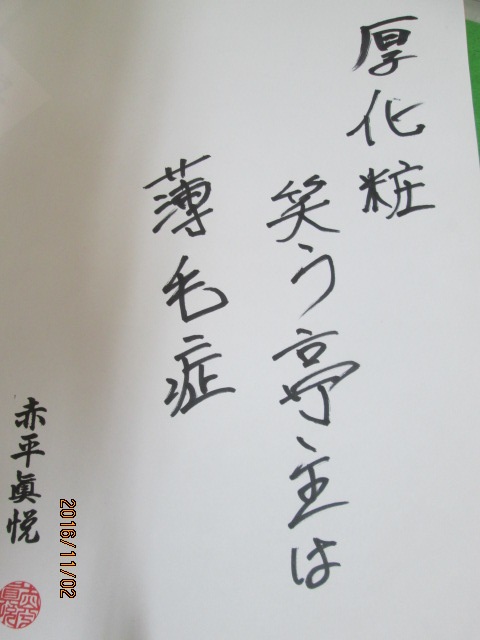 厚化粧
笑う亭主は
薄毛症
赤平眞悦
2016/11/02